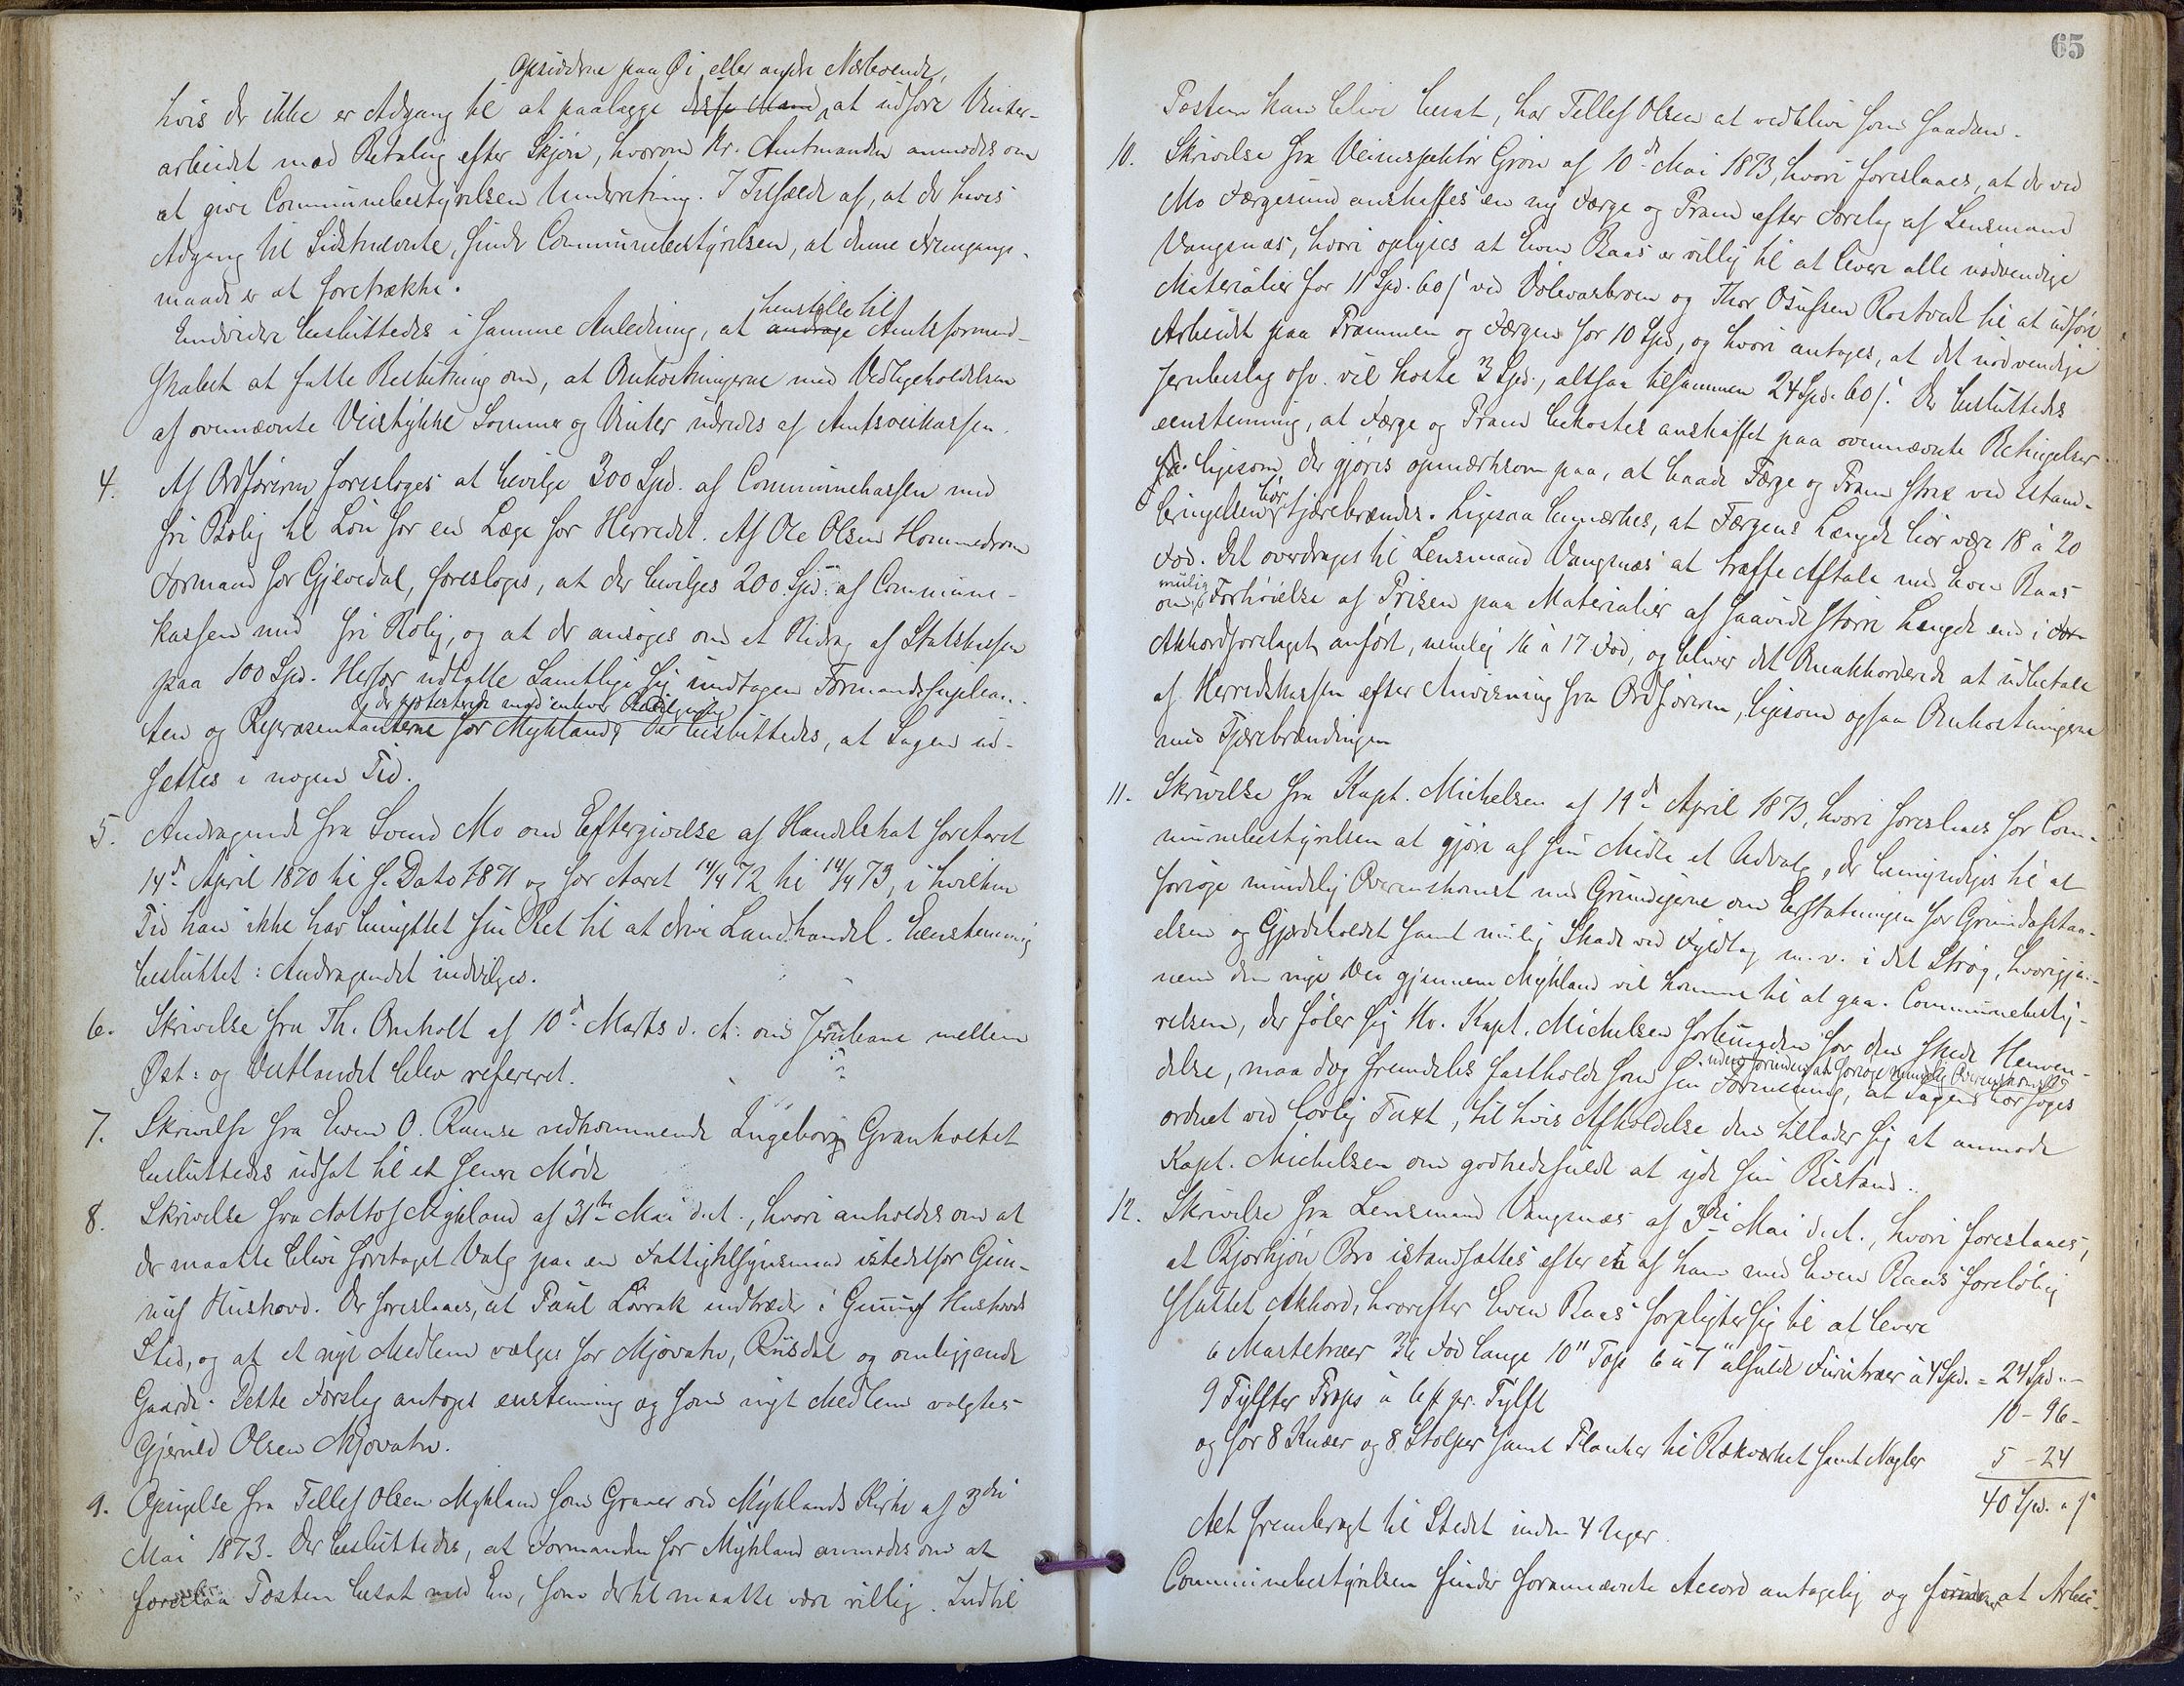 Opsidderne paa Øi eller andre Nærboende,
hvis der ikke er Adgang til at paalægge disse Mænd, at udføre Vinter-
arbeidet mod Betaling efter Skjøn, hvorom Hr. Amtmanden anmodes om
at give Communebestyrelsen Underretning. I Tilfælde af, at der haves
Adgang til Sidstnævnte, finder Communebestyrelsen, at denne Fremgangs-
maade er at foretrække.
henstille til
Endvidere besluttedes i samme Anledning, at andrage Amtsformand-
skabet at fatte Beslutning om, at Omkostningerne med Vedligeholdelsen
af ovennævnte Veistykke Sommer og Vinter udredes af Amtsveikassen.
4. Af Ordføreren foresloges at bevilge 300 Spd. af Communekassen med
fri Bolig til Løn for en Læge for Herredet. Af Ole Olsen Hommedrom
Formand for Gjøvedal, foresloges, at der bevilges 200 Spd. af Commune-
kassen med fri Bolig, og at der ansøges om et Bidrag af Statskassen
paa 100 Spd. Herfor udtalte Samtlige sig undtagen Formandssuplean-
der protesterede mod enhver Bevilgning
ten og Repræsentanterne for Mykland, Der besluttedes, at Sagen ud-
sættes i nogen Tid.
5. Andragende fra Svend Mo om Eftergivelse af Handelskat for Aaret
14de April 1870 til s. Dato 1871 og for Aaret 14/4 72 til 14/4 73, i hvilken
Tid han ikke har benyttet sin Ret til at drive Landhandel. Eenstemmig
besluttet: Andragendet indvilges.
6. Skrivelse fra Th. Omholt af 10de Marts d. A. om Jernbane mellem
Øst- og Vestlandet blev refereret.
7. Skrivelse fra Even O. Ramse vedkommende Ingeborg Granholtet
besluttedes udsat til et senere Møde
8. Skrivelse fra Aottof Mykland af 31te Mai d. A., hvori anholdes om at
der maatte blive foretaget Valg paa en Fattigtilsynsmand istedetfor Gun-
nuf Hushovd. Der foreslaaes, at Paul Løvrak indtræder i Gunnuf Hushovds
Sted, og at et nyt Medlem vælges for Mjovatn, Riisdal og omliggende
Gaarde. Dette Forslag antoges enstemmig og som nyt Medlem valgtes
Gjeruld Olsen Mjovatn.
9. Opsigelse fra Tellef Olsen Mykland som Graver ved Myklands Kirke af 3die
Mai 1873. Der besluttedes, at Formanden for Mykland anmodes om at
foreslaa Posten besat med En, som dertil maatte være villig. Indtil
65
Posten kan blive besat, har Tellef Olsen at vedblive som saadan.
10. Skrivelse fra Veiinspektør Grøn af 10de Mai 1873, hvori foreslaaes, at der ved
Mo Færgesund anskaffes en ny Færge og Pram efter Forslag af Lensmand
Vangsnæs, hvori oplyses at Even Raas er villig til at levere alle nødvendige
Materialier for 11 Spd. 60 s ved Vølevasbroen og Thor Osufsen Rostvedt til at udføre
Arbeidet paa Prammen og Færgen for 10 Spd., og hvori antages, at det nødvendige
Jernbeslag osv. vil koste 3 Spd., altsaa tilsammen 24 Spd. 60 s. Der besluttedes
eenstemmig, at Færge og Pram bekostes anskaffet paa ovennævnte Betingelser
ligesom der gjøres opmærksom paa, at baade Færge og Pram strax ved Istand-
bringelsen bør tjærebrændes. Ligesaa bemærkes, at Færgens Længde bør være 18 à 20
Fod. Det overdrages til Lensmand Vangsnæs at træffe Aftale med Even Raas
om mulig Forhøielse af Prisen paa Materialier af saavidt større Længde end i For-
Akkordforslaget anført, nemlig 16 à 17 Fod, og bliver det Omakkorderede at udbetale
af Herredskassen efter Anvisning fra Ordføreren, ligesom ogsaa Omkostningerne
med Tjærebrændingen
11. Skrivelse fra Kapt. Michelsen af 19de April 1873, hvori foreslaaes for Com-
munebestyrelsen at gjøre af sin Midte et Udvalg, der bemyndiges til at
forsøge mindelig Overenskomst med Grundeierne om Erstatningen for Grundafstaa-
elsen og Gjerdeholdet samt mulig Skade ved Fyldtag m. v. i det Strøg, hvorigjen-
nem den nye Vei gjennem Mykland vil komme til at gaa. Communebesty-
relsen, der føler sig Hr. Kapt. Michelsen forbunden for den skede Henven-
uden forinden at forsøge mindelig Overenskomst
delse, maa dog fremdeles fastholde som sin Formening, at Sagen bør søges
ordnet ved lovlig Taxt, til hvis Afholdelse den tillader sig at anmode
Kapt. Michelsen om godhedsfuldt at yde sin Bistand.
12. Skrivelse fra Lensmand Vangsnæs af 3die Mai d. A., hvori foreslaaes,
at Bjorkjøn Bro istandsættes efter en af ham med Even Raas foreløbig
sluttet Akkord, hvorefter Even Raas forpligter sig til at levere
6 Mastetræer 36 Fod lange 10" Top 6 à 7" alfulde Furutræer à 4 Spd. = 24 Spd. -
9 Tylfter Props à pr. Tylft 10 - 96 -
og for 8 Knæer og 8 Stolper samt Planker til Rækværket samt Nagler 5 - 24
40 Spd. " s
Alt frembragt til Stedet inden 4 Uger.
Communebestyrelsen finder forannævnte Accord antagelig og at Arbei-